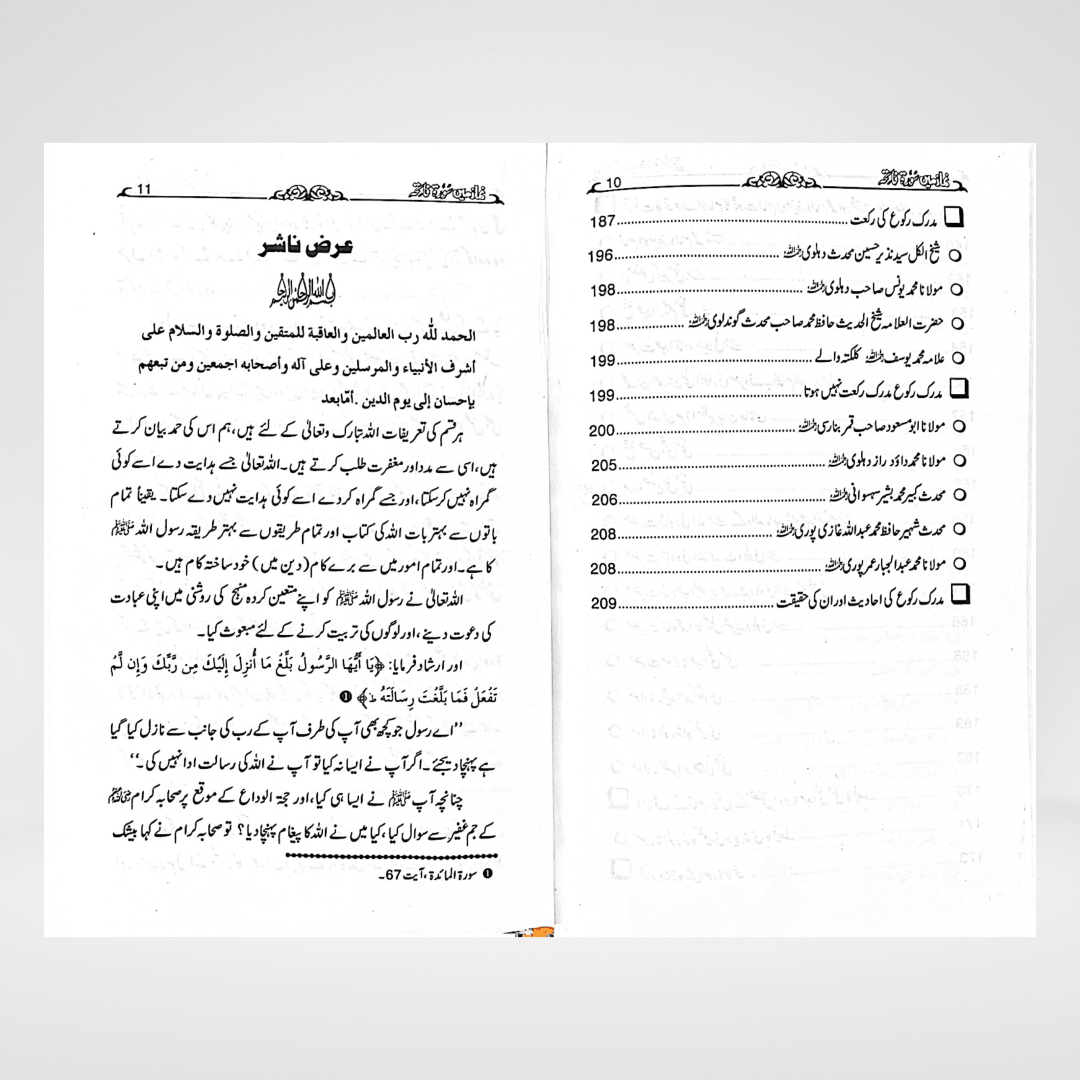 10 نماز میں سورۃ فاتحہ
مدرک رکوع کی رکعت ........ 187
شیخ الکل سید نذیر حسین محدث دہلوی رحمہ اللہ ........ 196
مولانا محمد یونس صاحب دہلوی رحمہ اللہ ........ 198
حضرت العلامہ شیخ الحدیث حافظ محمد صاحب محدث گوندلوی رحمہ اللہ ........ 198
علامہ محمد یوسف رحمہ اللہ کلکتہ والے ........ 199
مدرک رکوع مدرک رکعت نہیں ہوتا ........ 199
مولانا ابو مسعود صاحب قمر بنارسی رحمہ اللہ ........ 200
مولانا محمد داؤد راز دہلوی رحمہ اللہ ........ 205
محدث کبیر محمد بشیر سہسوانی رحمہ اللہ ........ 206
محدث شہیر حافظ محمد عبداللہ غازی پوری رحمہ اللہ ........ 208
مولانا محمد عبدالجبار عمر پوری رحمہ اللہ ........ 208
مدرک رکوع کی احادیث اور ان کی حقیقت ........ 209
11 نماز میں سورۃ فاتحہ
عرض ناشر
بسم اللہ الرحمن الرحیم
الحمد للّٰه رب العالمين والعاقبة للمتقين والصلوة والسلام على
أشرف الأنبياء والمرسلين وعلى آله وأصحابه اجمعين ومن تبعهم
بإحسان إلى يوم الدين . أمّابعد
ہر قسم کی تعریفات اللہ تبارک وتعالیٰ کے لئے ہیں، ہم اس کی حمد بیان کرتے
ہیں، اسی سے مدد اور مغفرت طلب کرتے ہیں۔ اللہ تعالیٰ جسے ہدایت دے اسے کوئی
گمراہ نہیں کر سکتا، اور جسے گمراہ کر دے اسے کوئی ہدایت نہیں دے سکتا۔ یقیناً تمام
باتوں سے بہتر بات اللہ کی کتاب اور تمام طریقوں سے بہتر طریقہ رسول اللہ ﷺ
کا ہے۔ اور تمام امور میں سے برے کام (دین میں) خود ساختہ کام ہیں۔
اللہ تعالیٰ نے رسول اللہ ﷺ کو اپنے متعین کردہ منہج کی روشنی میں اپنی عبادت
کی دعوت دینے، اور لوگوں کی تربیت کرنے کے لئے مبعوث کیا۔
اور ارشاد فرمایا: ﴿يَا أَيُّهَا الرَّسُولُ بَلِّغْ مَا أُنزِلَ إِلَيْكَ مِن رَّبِّكَ وَإِن لَّمْ
تَفْعَلْ فَمَا بَلَّغْتَ رِسَالَتَهُ ط﴾ ❶
’’اے رسول جو کچھ بھی آپ کی طرف آپ کے رب کی جانب سے نازل کیا گیا
ہے پہنچا دیجئے۔ اگر آپ نے ایسا نہ کیا تو آپ نے اللہ کی رسالت ادا نہیں کی۔‘‘
چنانچہ آپ ﷺ نے ایسا ہی کیا، اور حجۃ الوداع کے موقع پر صحابہ کرام رضی اللہ عنہم
کے جم غفیر سے سوال کیا، کیا میں نے اللہ کا پیغام پہنچا دیا؟ تو صحابہ کرام نے کہا بیشک
❶ سورۃ المائدۃ، آیت 67۔